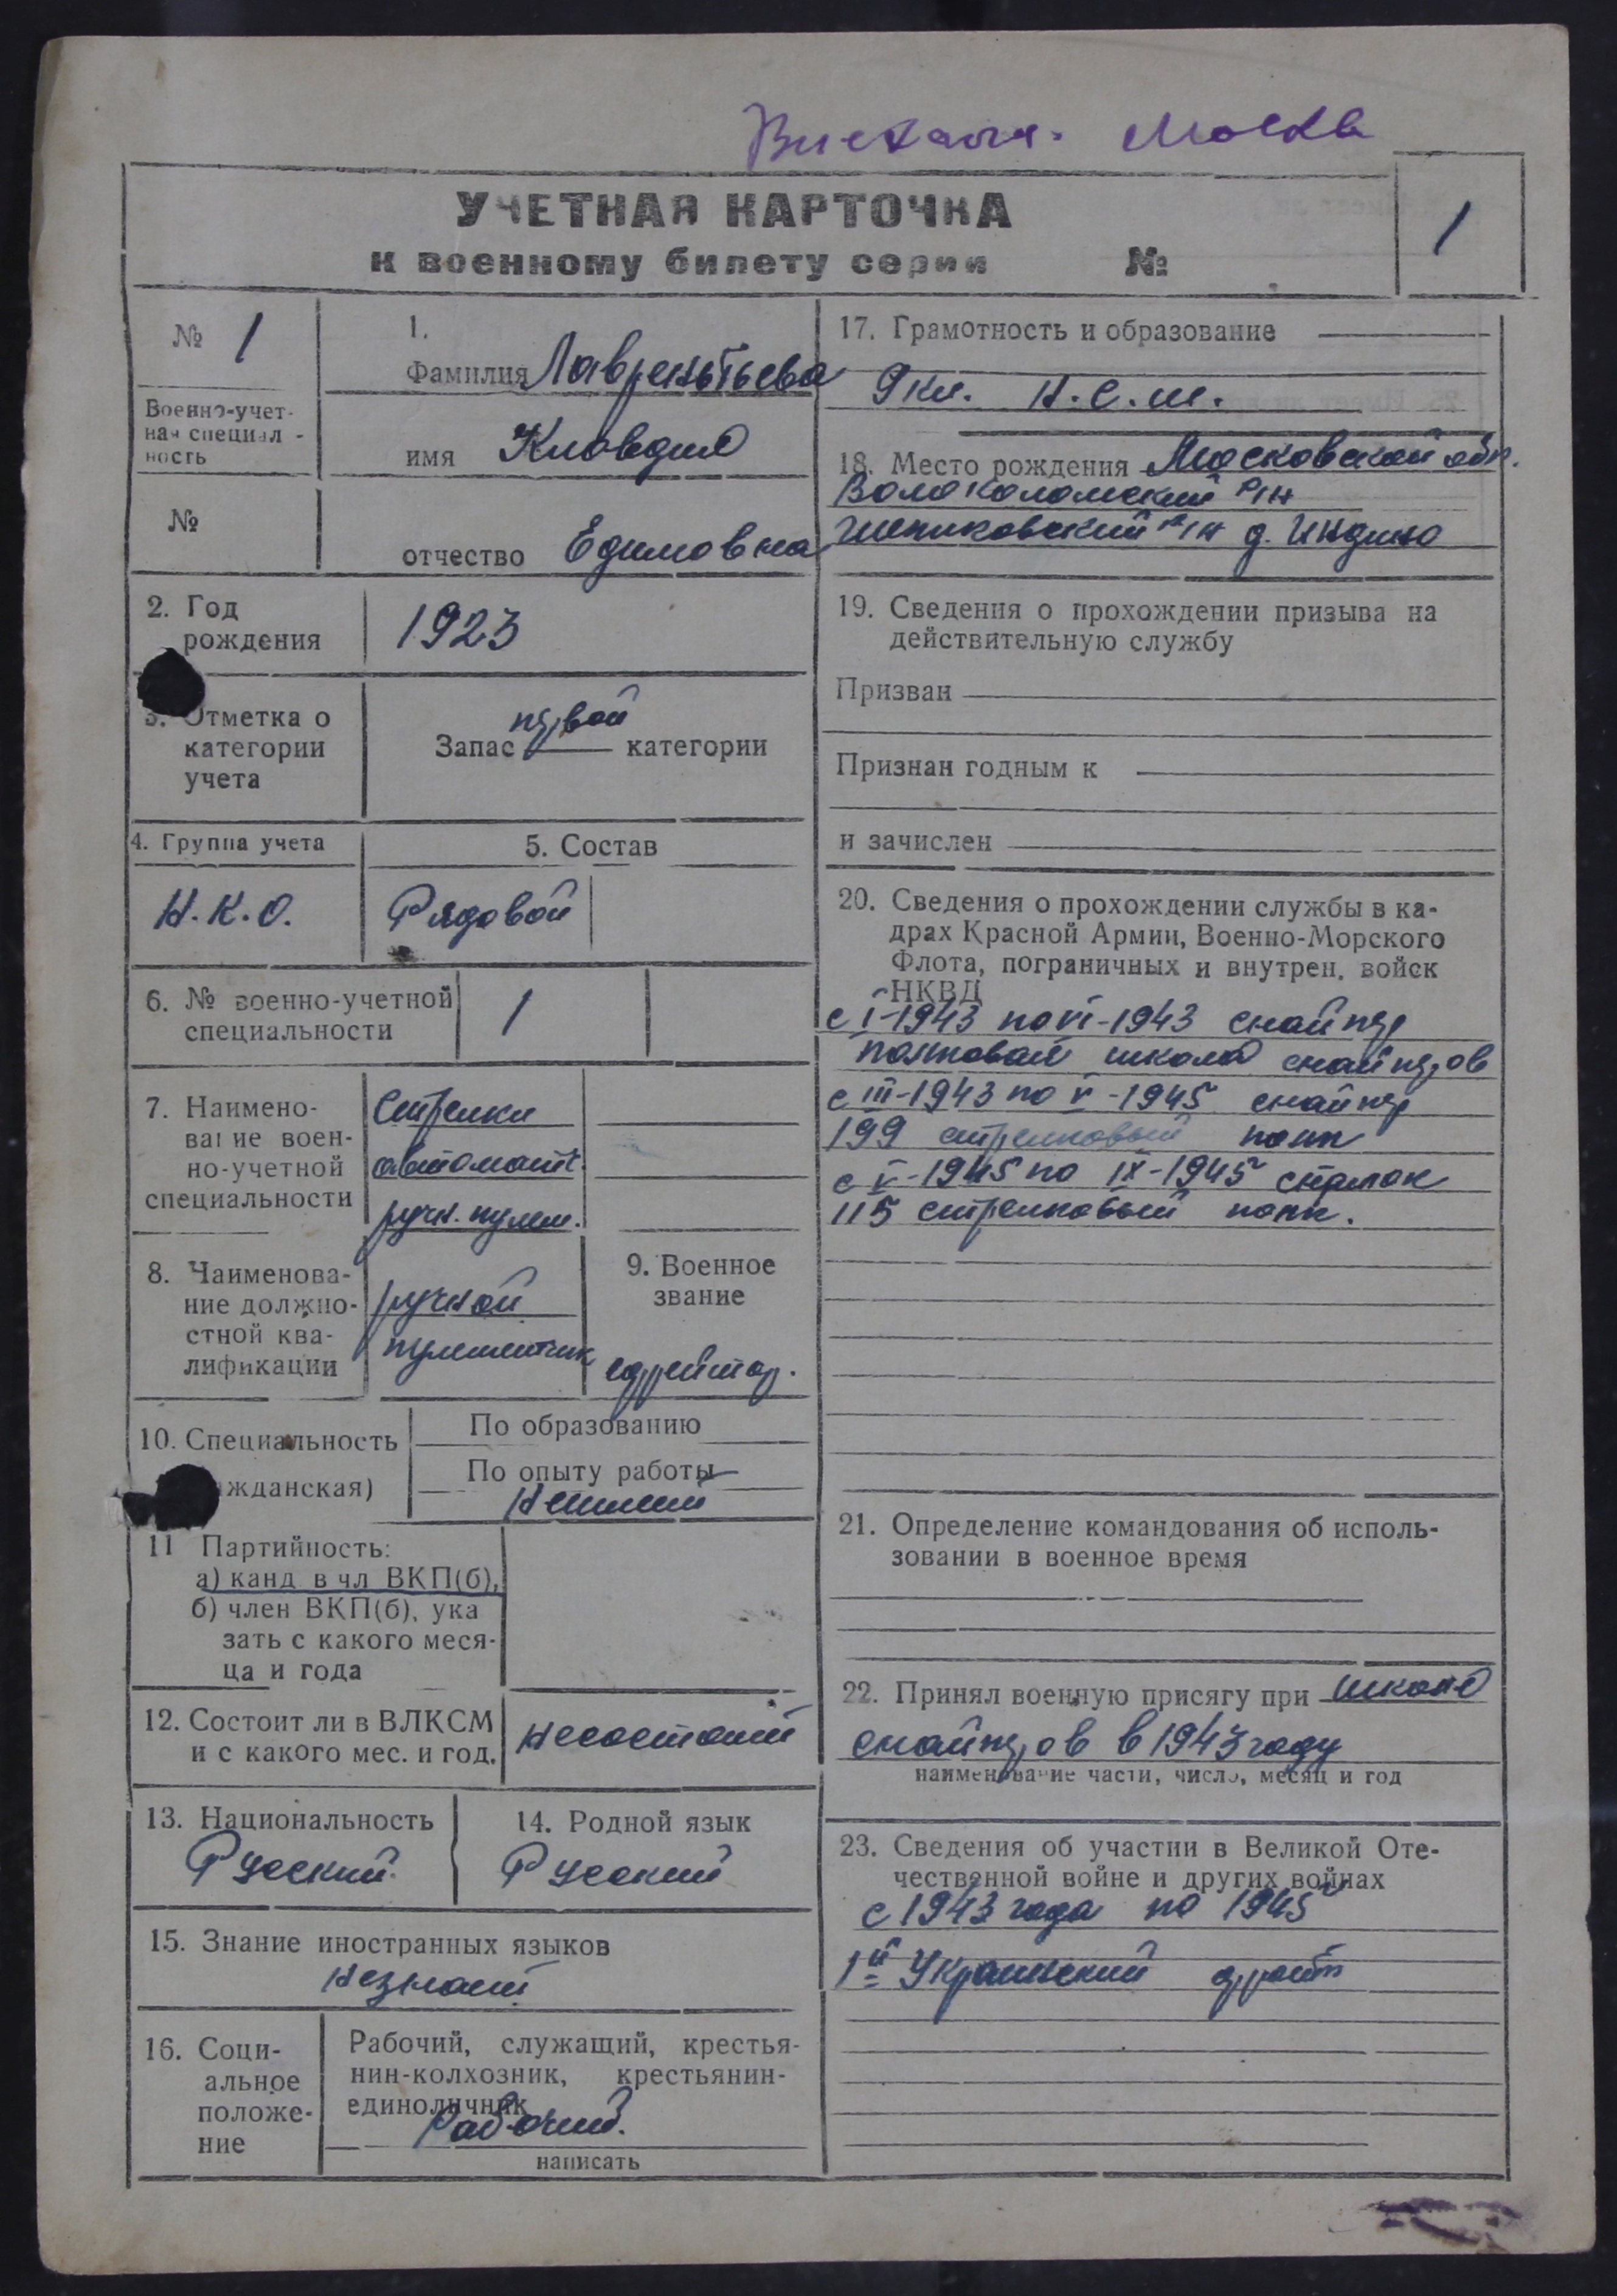 Выехала. Москва
УЧЕТНАЯ КАРТОЧКА
к военному билету серии №
1
№ 1
Военно-учет-
ная специал-
ность
№
1.
Фамилия Лаврентьева
имя Клавдия
отчество Ефимовна
2. Год
рождения
1923
3. Отметка о
категории
учета
Запас первой категории
4. Группа учета
Н.К.О.
5. Состав
Рядовой
6. № военно-учетной
специальности
1
7. Наимено-
вание воен-
но-учетной
специальности
Стрелки
автомат.
ручн. пулем.
8. Наименова-
ние должно-
стной ква-
лификации
ручной
пулеметчик
9. Военное
звание
ефрейтор.
10. Специальность
ажданская)
По образованию
По опыту работы
11 Партийность:
а) канд. в чл ВКП(б),
б) член ВКП(б), ука
зать с какого меся-
ца и года
12. Состоит ли в ВЛКСМ
и с какого мес. и год.
несостоит
13. Национальность
Русский.
14. Родной язык
Русский
15. Знание иностранных языков
незнает
16. Соци-
альное
положе-
ние
Рабочий, служащий, крестья-
нин-колхозник, крестьянин-
единоличник
Рабочий.
написать
17. Грамотность и образование
9 кл. Н.С.Ш.
18. Место рождения Московской обл.
Волоколамский р/н
р/н д.
19. Сведения о прохождении призыва на
действительную службу
Призван
Признан годным к
и зачислен
20. Сведения о прохождении службы в ка-
драх Красной Армии, Военно-Морского
Флота, пограничных и внутрен. войск
НКВД
с I-1943 по VI-1943 снайпер
полковой школа снайперов
с III-1943 по V-1945 снайпер
199 стрелковый полк
с V-1945 по IX-1945 стрелок
115 стрелковый полк.
21. Определение командования об исполь-
зовании в военное время
22. Принял военную присягу при школе
снайперов в 1943 году
наименование части, число, месяц и год
23. Сведения об участии в Великой Оте-
чественной войне и других войнах
с 1943 года по 1945
1й Украинский фронт